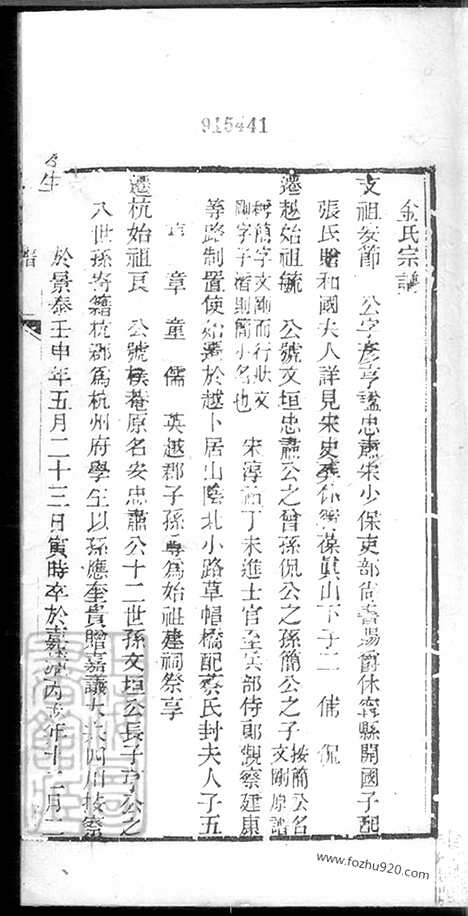 915441
金氏宗譜
支祖安節 公字彥亨諡忠肅宋少保吏部尚書賜爵休寧縣開國子配
張氏贈和國夫人詳見宋史 休寧葆眞山下子二 俌 侃
遷越始祖毓 公號文垣忠肅公之曾孫侃公之孫簡公之子按簡公名文剛原譜
轉簡字文剛而行狀文剛字子潛則簡小名也 宋淳祐丁未進士官至兵部侍郞觀察建康
等路制置使始遷於越卜居山陰北小路草帽橋配蔡氏封夫人子五
章 童 儒 英越郡子孫尊為始祖建祠祭享
遷杭始祖艮 公號樸菴原名安忠肅公十二世孫文垣公長子亨公之
八世孫寄籍杭郡為杭州府學生以孫應奎貴贈嘉議大夫四川按察
於景泰壬申年五月二十三日寅時卒於嘉靖丙 年十二月二
生
譜
www.fozhu920.com